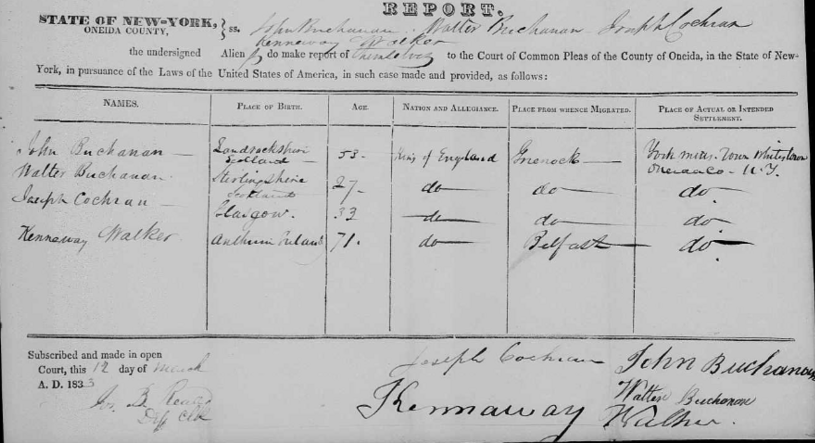 REPORT.
STATE OF NEW-YORK,
ONEIDA COUNTY, ss. John Buchanan. Walter Buchanan Joseph Cochran
Kenneway Walker
the undersigned Alien s do make report of themselves to the Court of Common Pleas of the County of Oneida, in the State of New-
York, in pursuance of the Laws of the United States of America, in such case made and provided, as follows:
NAMES. PLACE OF BIRTH. AGE. NATION AND ALLEGIANCE. PLACE FROM WHENCE MIGRATED. PLACE OF ACTUAL OR INTENDED SETTLEMENT.
John Buchanan Scotland 53. King of England Greenock York mills. Town Whitestown
Oneida Co. N.Y.
Walter Buchanan Sterlingshire Scotland 27 do do do
Joseph Cochran Glasgow. 33 do do do
Kenneway Walker 71. do Belfast do
Subscribed and made in open
Court, this 12 day of March
A. D. 1833
B
Dep Clk
Joseph Cochran John Buchanan
Walter Buchanan
Kennaway Walker.